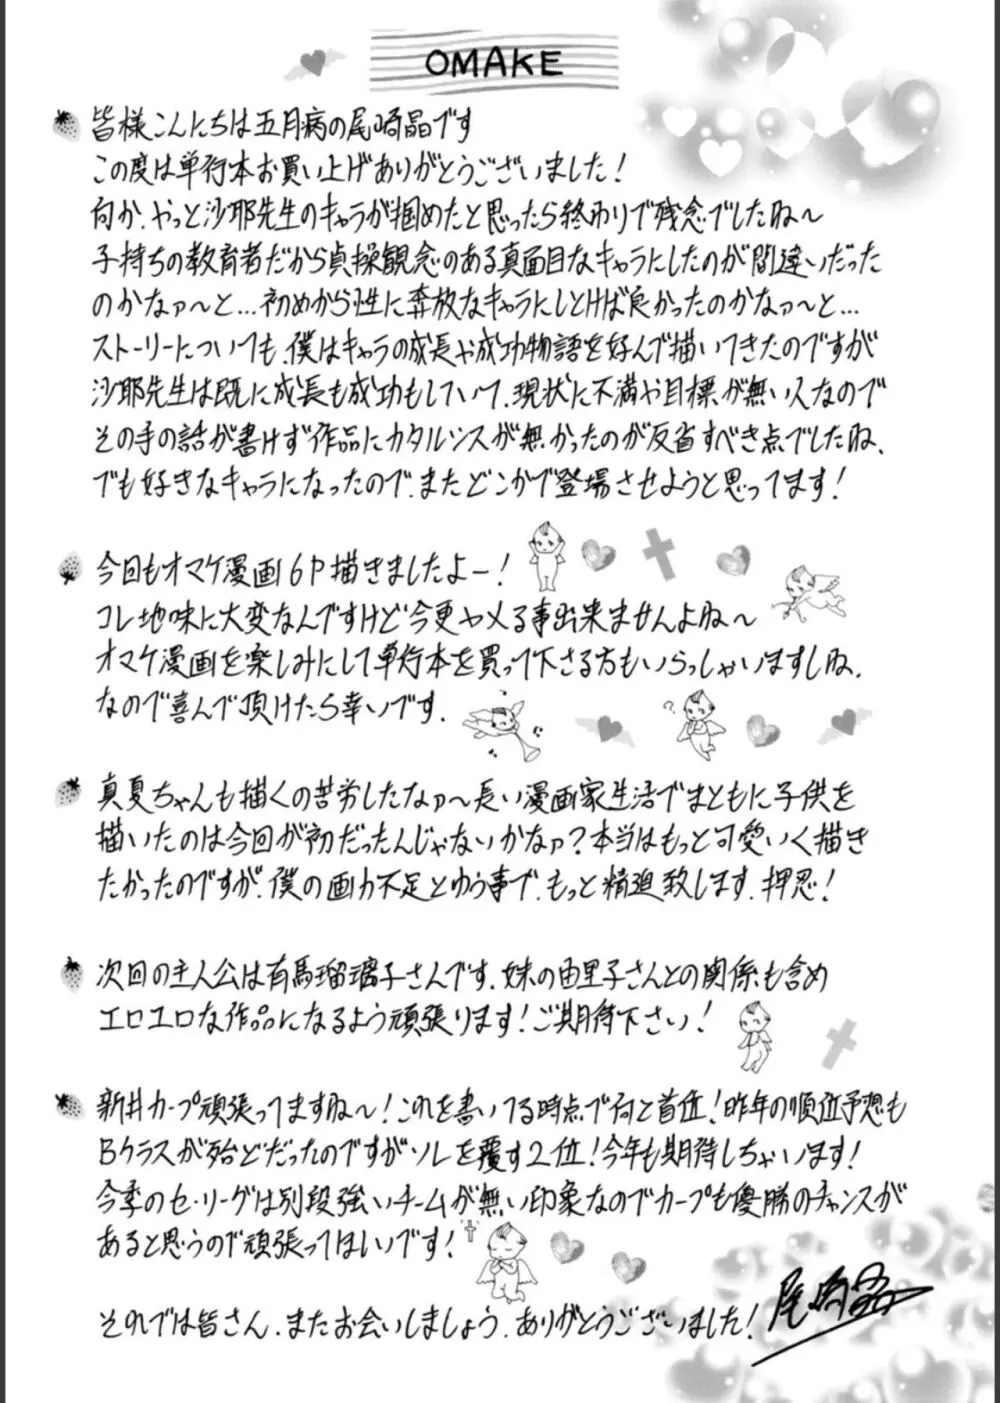 OMAKE
皆様こんにちは五月病の尾崎晶です
この度は単行本お買い上げありがとうございました!
何か、やっと沙耶先生のキャラが掴めたと思ったら終わりで残念でしたね〜
子持ちの教育者だから貞操観念のある真面目なキャラにしたのが間違いだった
のかなァ〜と…初めから性に奔放なキャラにしとけば良かったのかなァ〜と…
ストーリーについても、僕はキャラの成長や成功物語を好んで描いてきたのですが
沙耶先生は既に成長も成功もしていて、現状に不満や目標が無い人なので
その手の話が書けず作品にカタルシスが無かったのが反省すべき点でしたね、
でも好きなキャラになったので、またどこかで登場させようと思ってます!
今回もオマケ漫画6P描きましたよー!
コレ地味に大変なんですけど今更ヤメる事出来ませんよね〜
オマケ漫画を楽しみにして単行本を買って下さる方もいらっしゃいますしね、
なので喜んで頂けたら幸いです、
真夏ちゃんも描くの苦労したなァ〜長い漫画家生活でまともに子供を
描いたのは今回が初だったんじゃないかなァ?本当はもっと可愛いく描き
たかったのですが、僕の画力不足とゆう事で、もっと精進致します、押忍!
次回の主人公は有馬瑠璃子さんです、妹の由里子さんとの関係も含め
エロエロな作品になるよう頑張ります!ご期待下さい!
新井カープ頑張ってますね〜!これを書いてる時点で何と首位!昨年の順位予想も
Bクラスが殆どだったのですがソレを覆す2位!今年も期待しちゃいます!
今季のセ・リーグは別段強いチームが無い印象なのでカープも優勝のチャンスが
あると思うので頑張ってほしいです!
それでは皆さん、またお会いしましょう、ありがとうございました!
尾崎晶